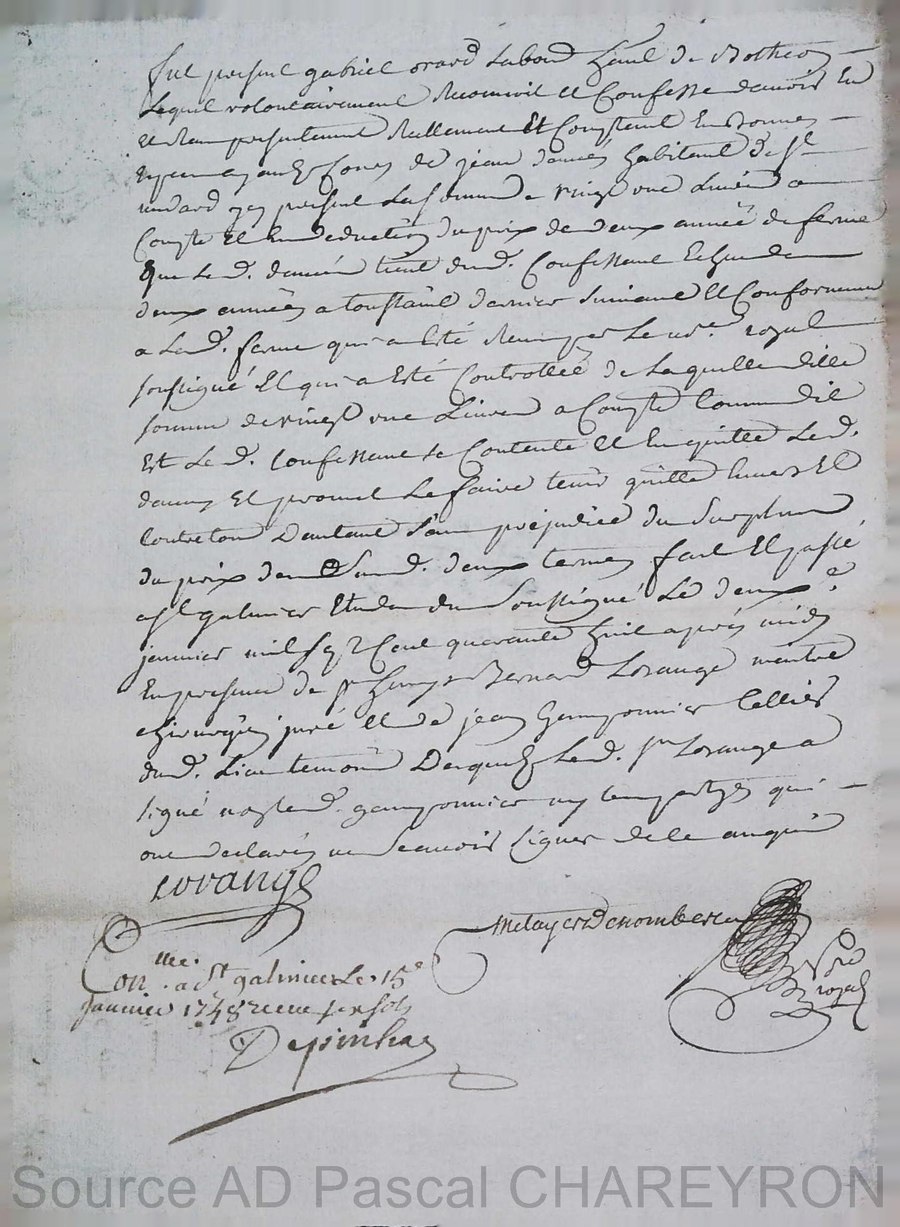 fut present gabriel orard labour habit de Botheon
Lequel volontairement Reconnoit et Confesse davoir Eu
et Receu presentement Reellement et Comptant En bonnes
Especes ayant Cours de jean damien habitant de st
medard icy present La somme de vingt une Livres a
Compte et En deduction du prix de deux année de ferme
que Led. damien tient dud. Confessant Echeu de
deux années a toussaint dernier suivant et Conformement
a Lad. ferme qui a Eté Receu par Le nre royal
soussigné Et qui a Esté Controllée de Laquelle ditte
somme de vingt une Livres a Compte Comme dit
Est Le d. Confessant se Contente et En quitte Le d.
damien Et promet Le faire tenir quitte Envers Et
Contre tous dautant sans prejudice du Surplus
du prix des Susd. deux termes fait Et passé
a st galmier Etude du Soussigné Le deuxe
janvier mil sept Cent quarante huit apres midy
En presence de sr Bernard Lorange maitre
chirurgien juré et de jean gamponnier Cellier
dud. Lieu temoins Desquels Led. sr Lorange a
signé non Led. gamponnier ny Les parties qui
ont declarés ne Scavoir signer de ce enquis
Lorange
metayer Denombereu
nre
royal
Con.lle a st galmier Le 15e
Janvier 1748 receu six sols
Depinhac
Source AD Pascal CHAREYRON